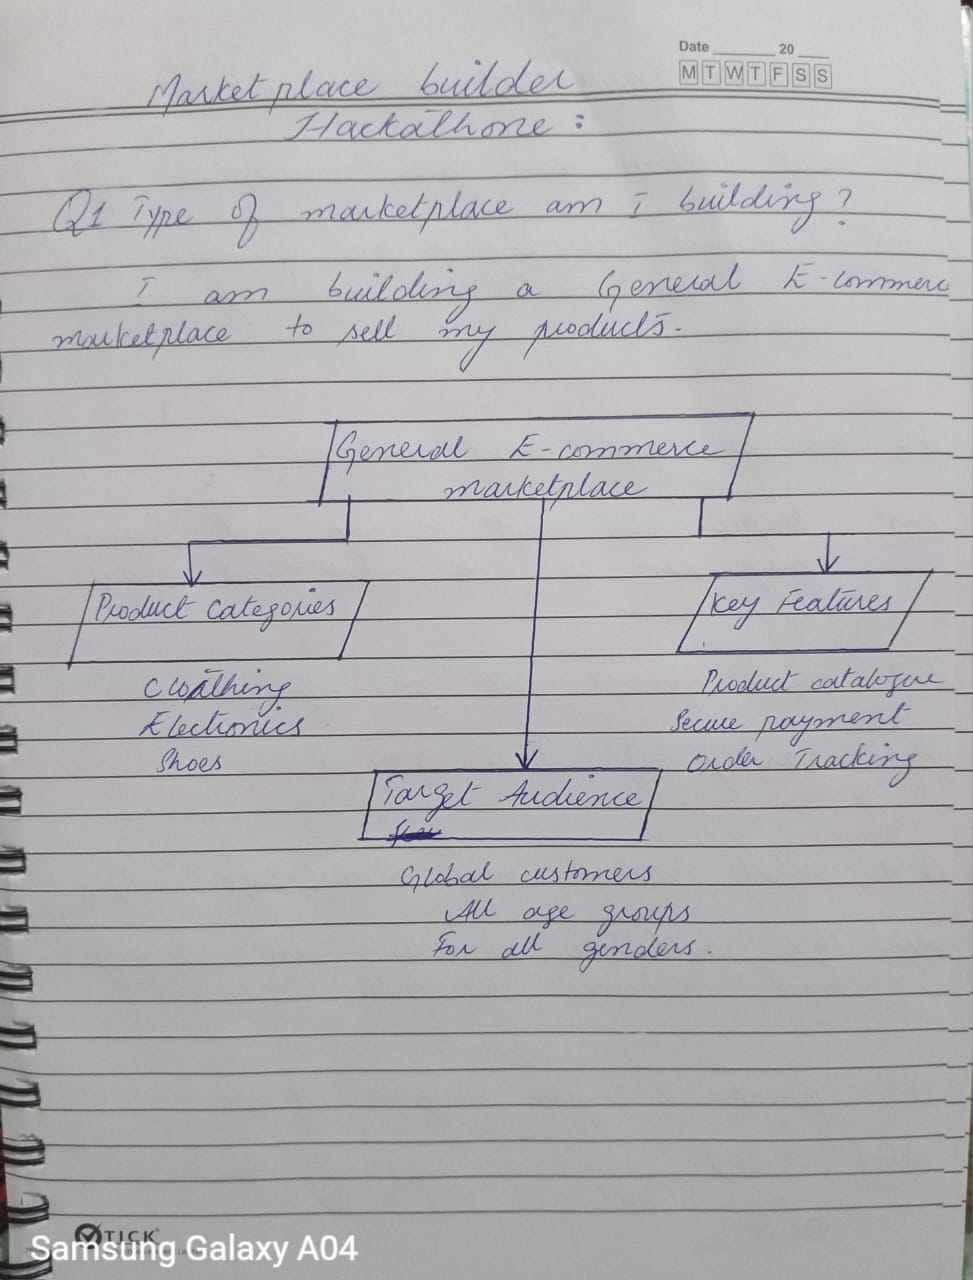 Date 20
M T W T F S S
Marketplace builder
Hackathone :
Q1 Type of marketplace am i building ?
I am building a General E-commerc
marketplace to sell my products.
General E-commerce
marketplace
Product Categories
Key Features
Cloathing
Electronics
Shoes
Product catalogue
Secure payment
Order Tracking
Target Audience
Global customers
All age groups
For all genders.
TICK
Samsung Galaxy A04